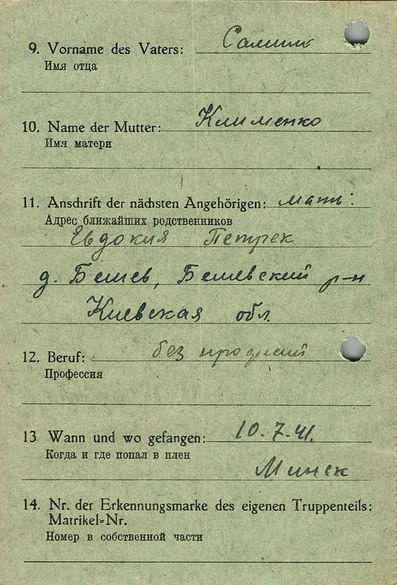 9. Vorname des Vaters: Самим
Имя отца
10. Name der Mutter: Клименко
Имя матери
11. Anschrift der nächsten Angehörigen: мать:
Адрес ближайших родственников
Евдокия Петрек
д. Бешев, Бешевский р-н
Киевская обл.
12. Beruf: без професий
Профессия
13 Wann und wo gefangen: 10.7.41.
Когда и где попал в плен
Минск
14. Nr. der Erkennungsmarke des eigenen Truppenteils:
Matrikel-Nr.
Номер в собственной части